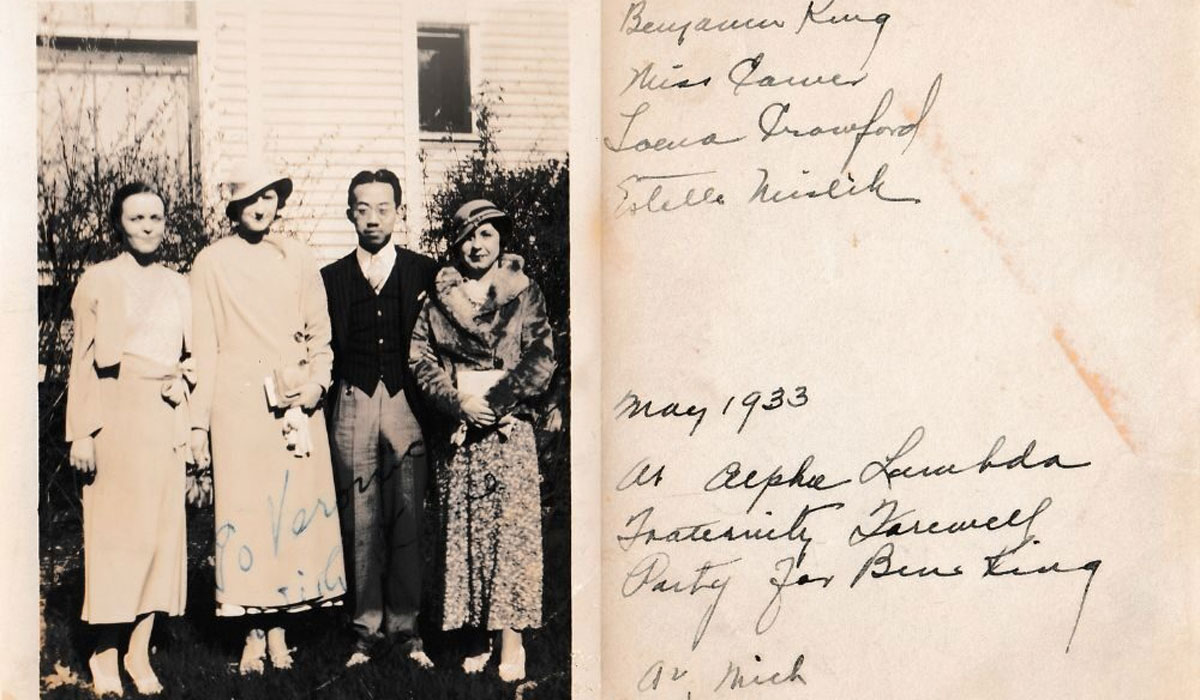 To Veronica
with
Benjamin King
Miss Carver
Loena Crawford
Estelle Mislik
May 1933
At Alpha Lambda
Fraternity Farewell
Party for Ben King
Mich